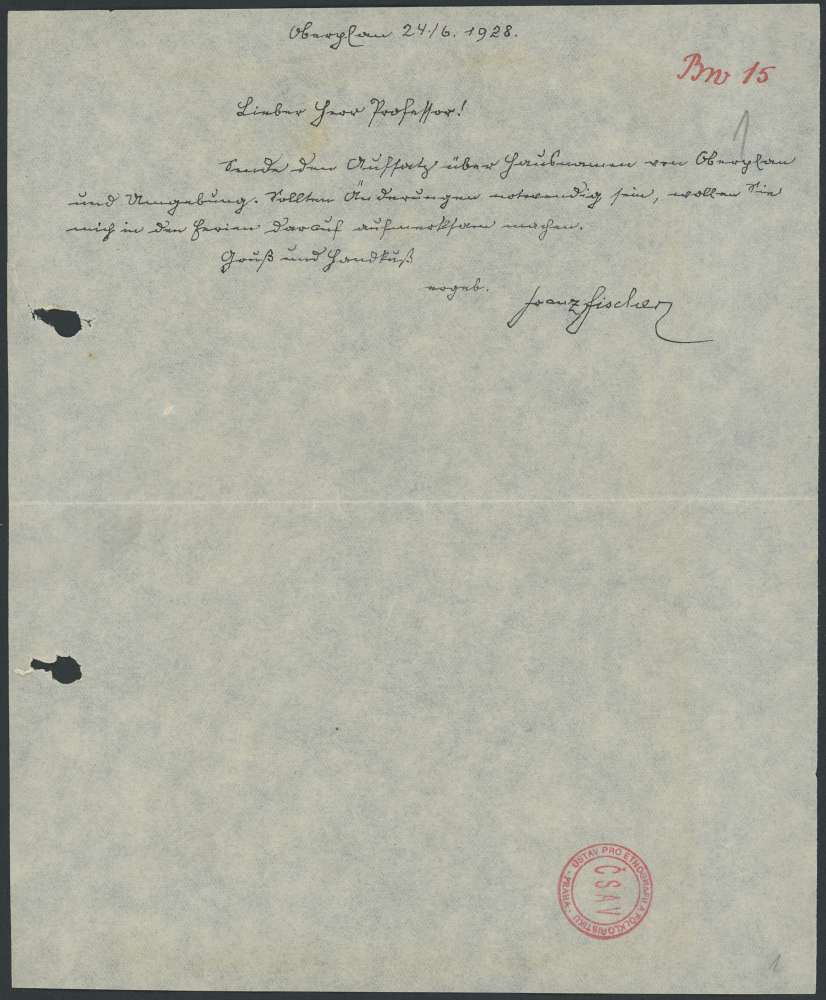 Oberplan 24./6. 1928.
Bw 15
1
Lieber Herr Professor!
Sende den Aufsatz über Hausnamen von Oberplan
und Umgebung. Sollten Änderungen notwendig sein, wollen Sie
mich in den Ferien darauf aufmerksam machen.
Gruß und Handkuß
ergeb. Franz Fischer
ÚSTAV PRO ETNOGRAFII A FOLKLORISTIKU · PRAHA ·
ČSAV
1